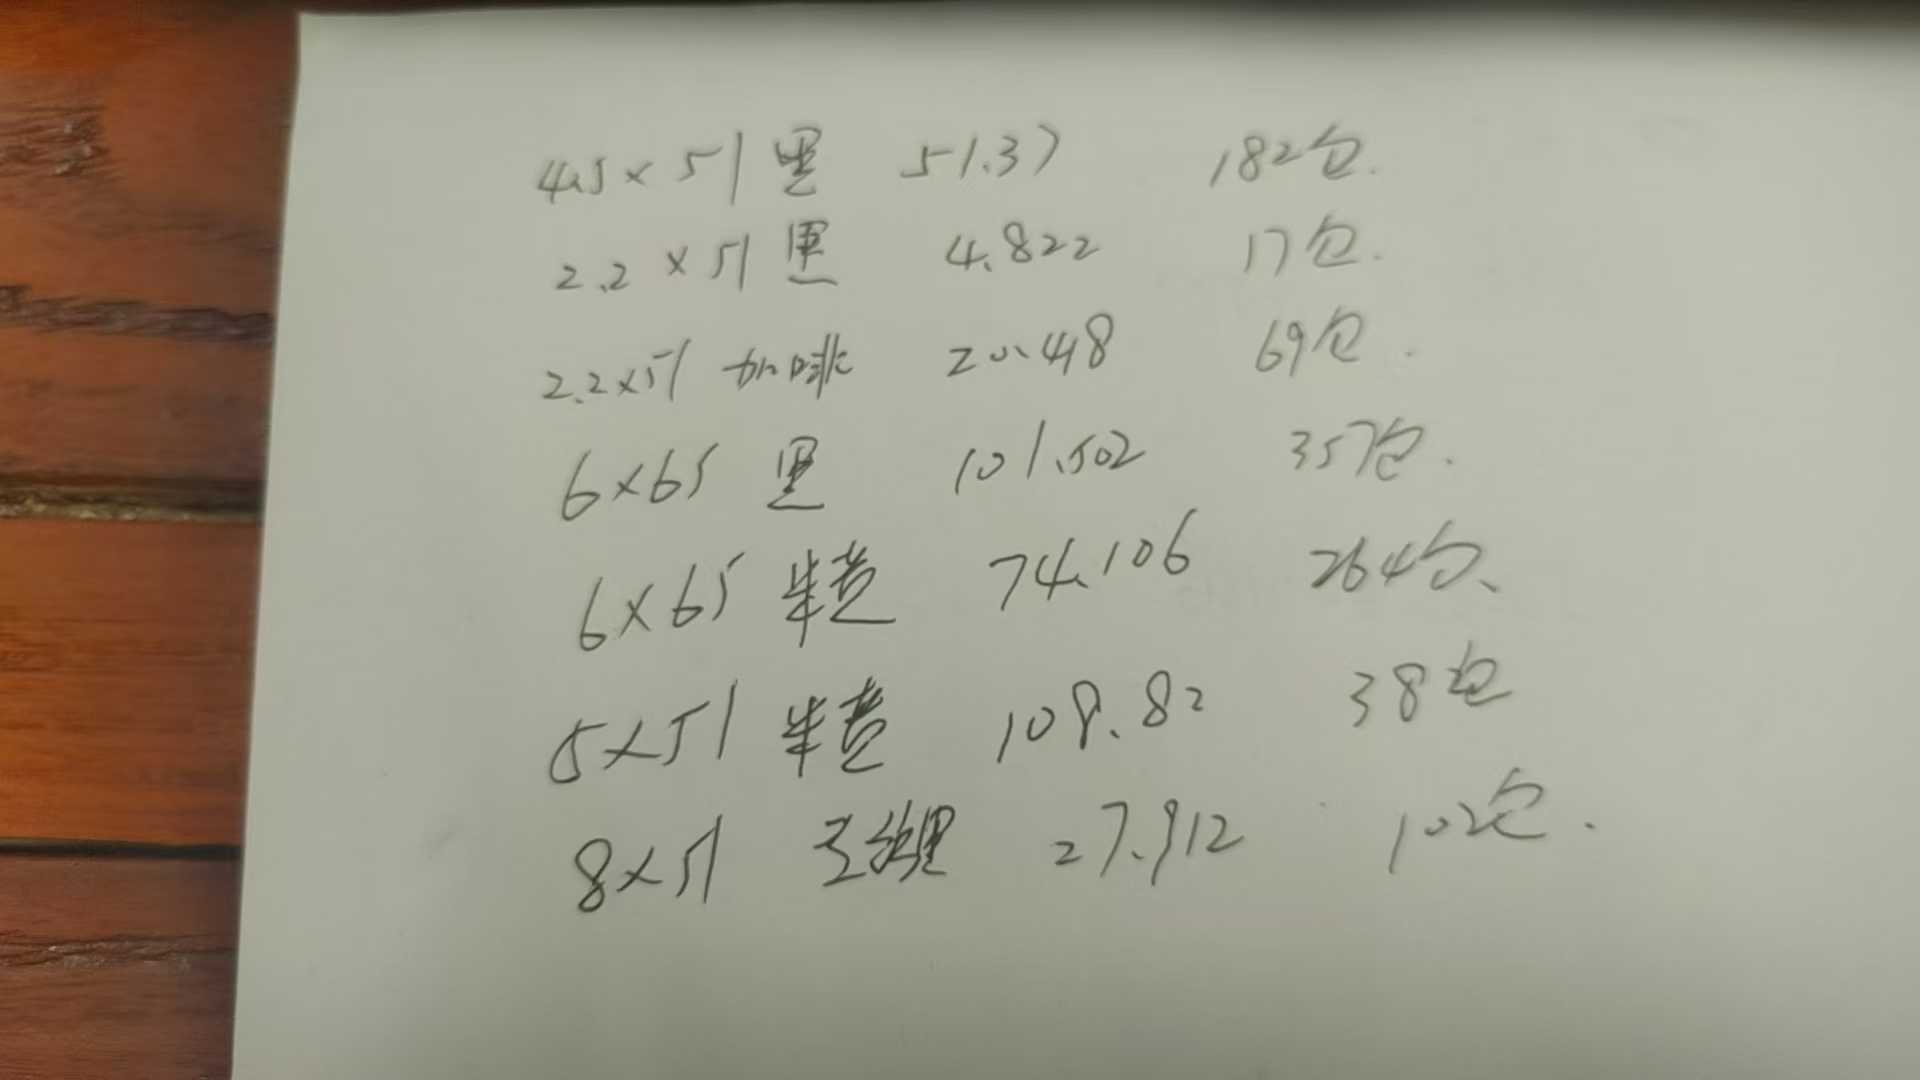 4.5×51 黑 51.37 182包.
2.2×51 黑 4.822 17包.
2.2×51 加啡 20.418 69包.
6×65 黑 101.502 357包.
6×65 半 74.106 264包.
5×51 半 108.82 38包
8×51 27.912 102包.